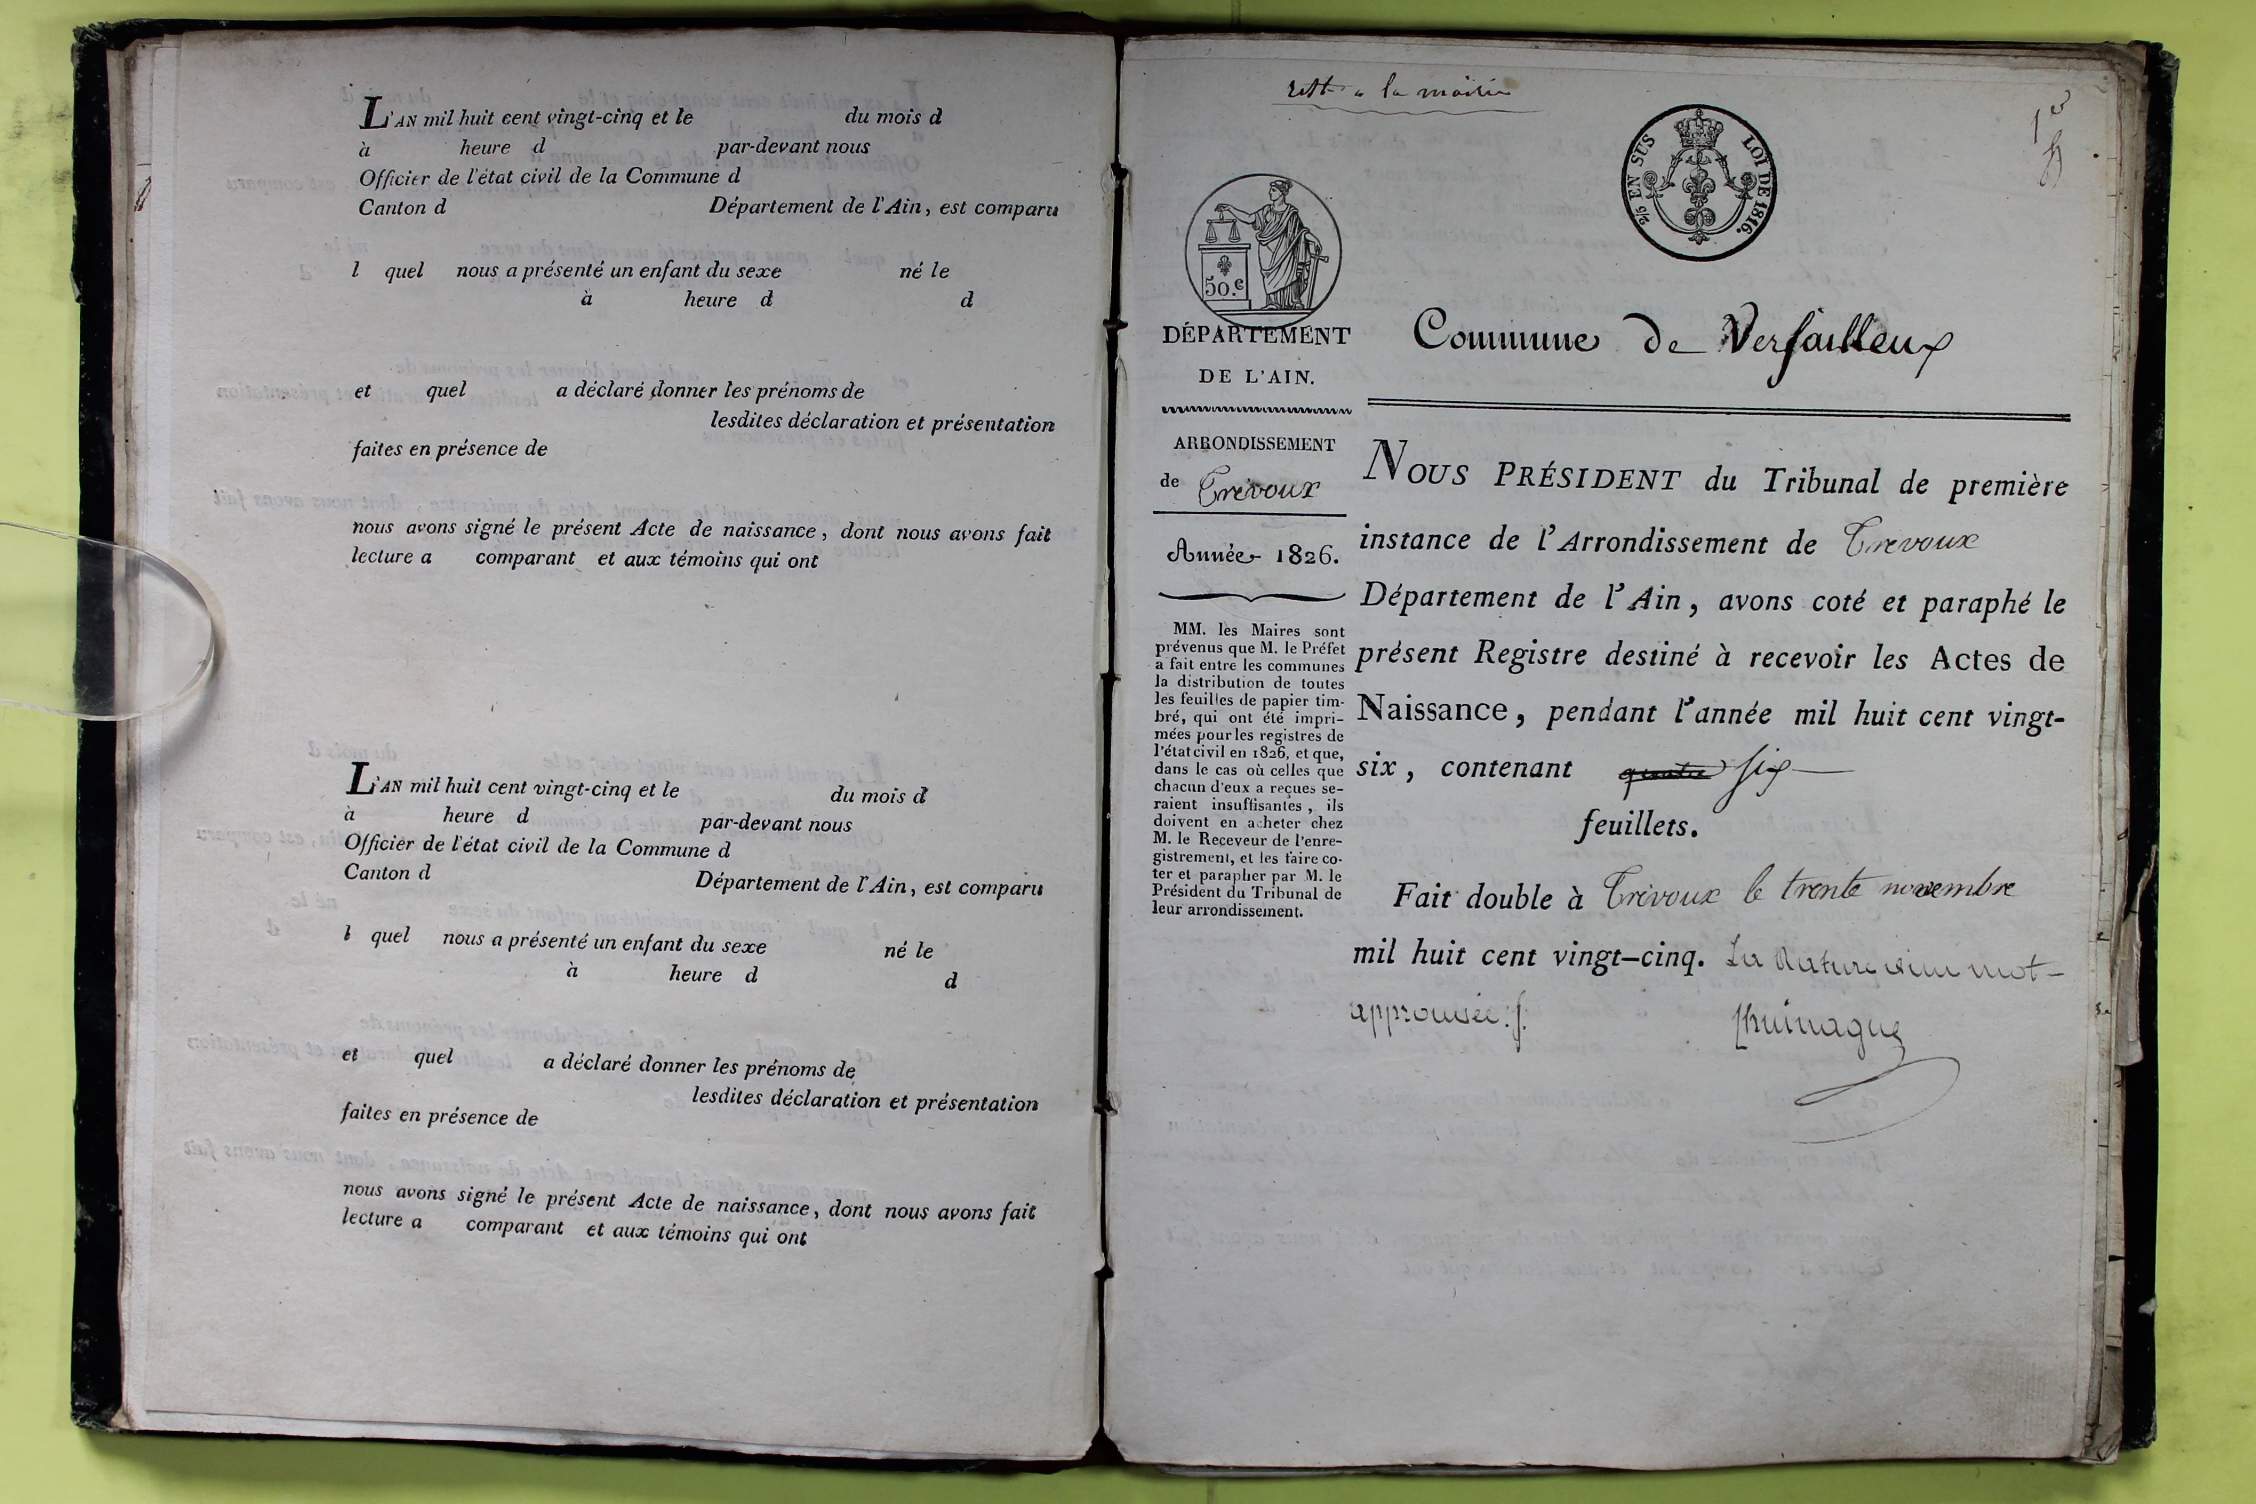 L'AN mil huit cent vingt-cinq et le du mois d
à heure d par-devant nous
Officier de l'état civil de la Commune d
Canton d Département de l'Ain, est comparu
l quel nous a présenté un enfant du sexe né le
à heure d d
et quel a déclaré donner les prénoms de
lesdites déclaration et présentation
faites en présence de
nous avons signé le présent Acte de naissance, dont nous avons fait
lecture a comparant et aux témoins qui ont
L'AN mil huit cent vingt-cinq et le du mois d
à heure d par-devant nous
Officier de l'état civil de la Commune d
Canton d Département de l'Ain, est comparu
l quel nous a présenté un enfant du sexe né le
à heure d d
et quel a déclaré donner les prénoms de
lesdites déclaration et présentation
faites en présence de
nous avons signé le présent Acte de naissance, dont nous avons fait
lecture a comparant et aux témoins qui ont
à la mairie
2/5 EN SUS LOI DE 1816.
50.c
DÉPARTEMENT
DE L'AIN.
ARRONDISSEMENT
de Trévoux
Année 1826.
MM. les Maires sont
prévenus que M. le Préfet
a fait entre les communes
la distribution de toutes
les feuilles de papier tim-
bré, qui ont été impri-
mées pour les registres de
l'état civil en 1826, et que,
dans le cas où celles que
chacun d'eux a reçues se-
raient insuffisantes, ils
doivent en acheter chez
M. le Receveur de l'enre-
gistrement, et les faire co-
ter et parapher par M. le
Président du Tribunal de
leur arrondissement.
Commune de Versailleux
NOUS PRÉSIDENT du Tribunal de première
instance de l'Arrondissement de Trevoux
Département de l'Ain, avons coté et paraphé le
présent Registre destiné à recevoir les Actes de
Naissance, pendant l'année mil huit cent vingt-
six, contenant quatre six
feuillets.
Fait double à Trévoux le trente novembre
mil huit cent vingt-cinq. La rature d'un mot
approuvée.